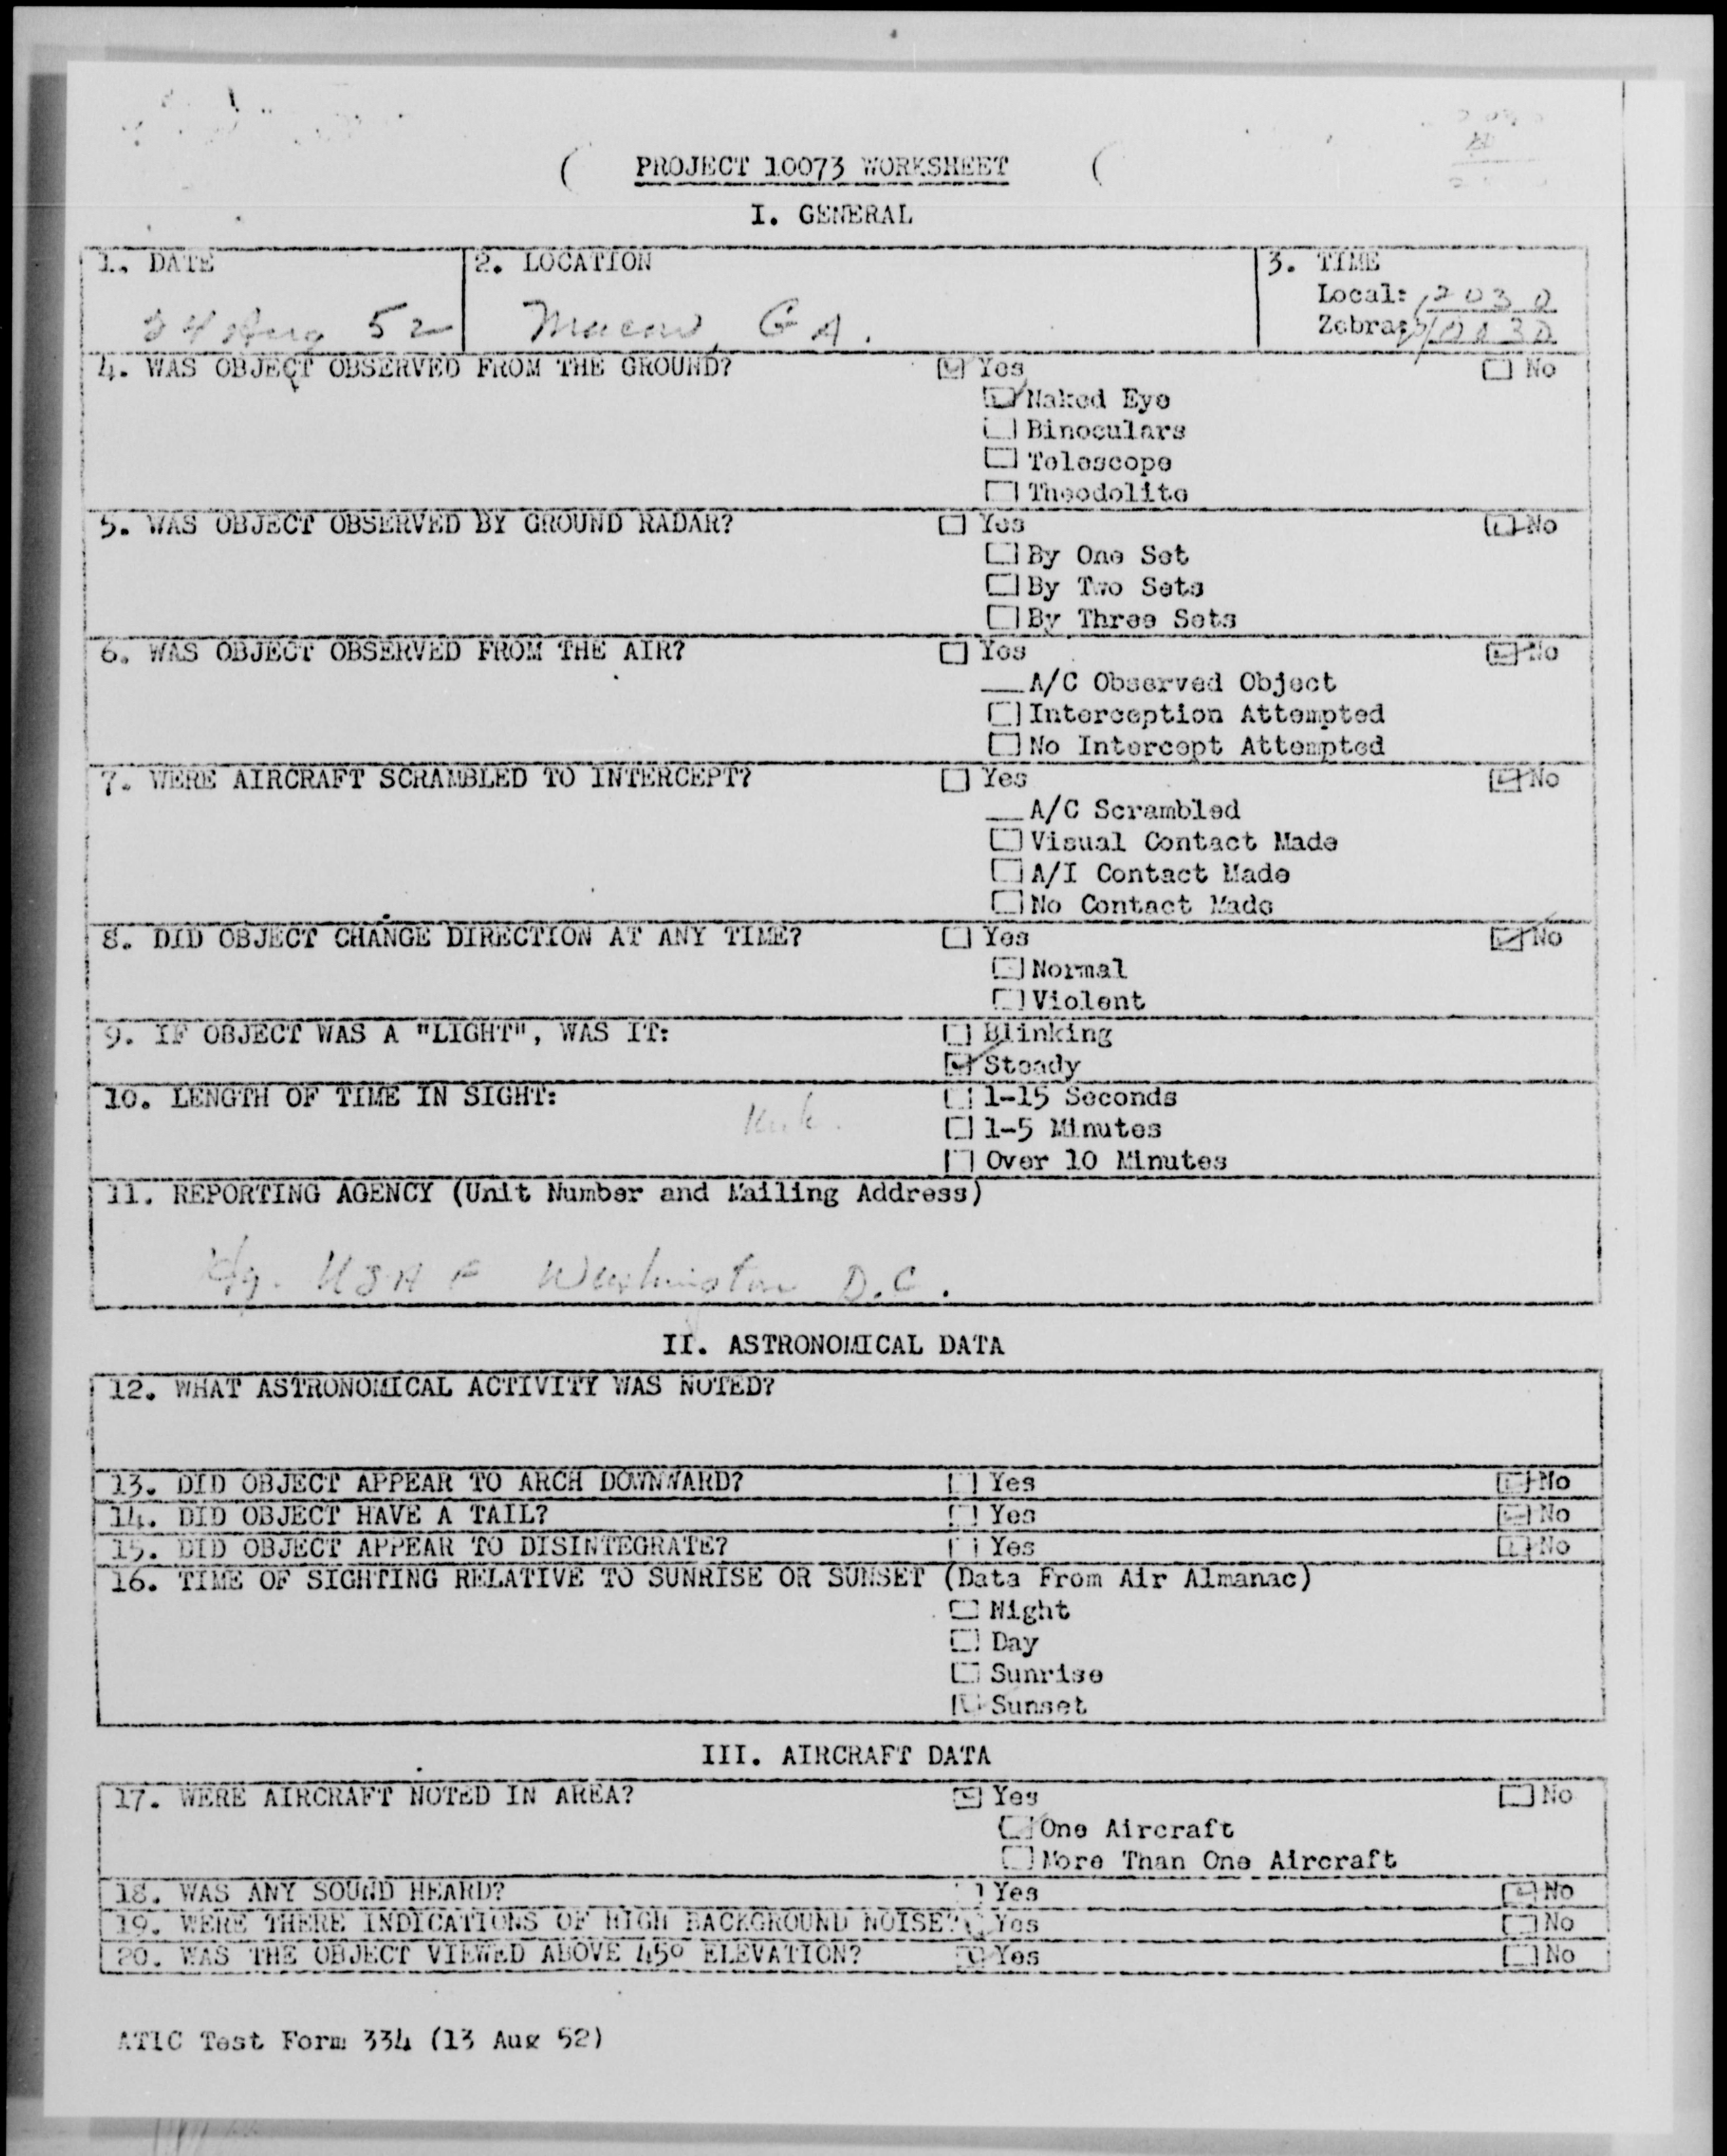 PROJECT 10073 WORKSHEET
I. GENERAL
1. DATE
24 Aug 52
2. LOCATION
Macon, GA.
3. TIME
Local: 2030
Zebra: 0030
4. WAS OBJECT OBSERVED FROM THE GROUND?
Yes
No
Naked Eye
Binoculars
Telescope
Theodolite
5. WAS OBJECT OBSERVED BY GROUND RADAR?
Yes
No
By One Set
By Two Sets
By Three Sets
6. WAS OBJECT OBSERVED FROM THE AIR?
Yes
No
A/C Observed Object
Interception Attempted
No Intercept Attempted
7. WERE AIRCRAFT SCRAMBLED TO INTERCEPT?
Yes
No
A/C Scrambled
Visual Contact Made
A/I Contact Made
No Contact Made
8. DID OBJECT CHANGE DIRECTION AT ANY TIME?
Yes
No
Normal
Violent
9. IF OBJECT WAS A "LIGHT", WAS IT:
Blinking
Steady
10. LENGTH OF TIME IN SIGHT:
1-15 Seconds
1-5 Minutes
Over 10 Minutes
11. REPORTING AGENCY (Unit Number and Mailing Address)
Hq. USAF Washington D.C.
II. ASTRONOMICAL DATA
12. WHAT ASTRONOMICAL ACTIVITY WAS NOTED?
13. DID OBJECT APPEAR TO ARCH DOWNWARD?
Yes
No
14. DID OBJECT HAVE A TAIL?
Yes
No
15. DID OBJECT APPEAR TO DISINTEGRATE?
Yes
No
16. TIME OF SIGHTING RELATIVE TO SUNRISE OR SUNSET (Data From Air Almanac)
Night
Day
Sunrise
Sunset
III. AIRCRAFT DATA
17. WERE AIRCRAFT NOTED IN AREA?
Yes
No
One Aircraft
More Than One Aircraft
18. WAS ANY SOUND HEARD?
Yes
No
19. WERE THERE INDICATIONS OF HIGH BACKGROUND NOISE?
Yes
No
20. WAS THE OBJECT VIEWED ABOVE 45° ELEVATION?
Yes
No
ATIC Test Form 334 (13 Aug 52)